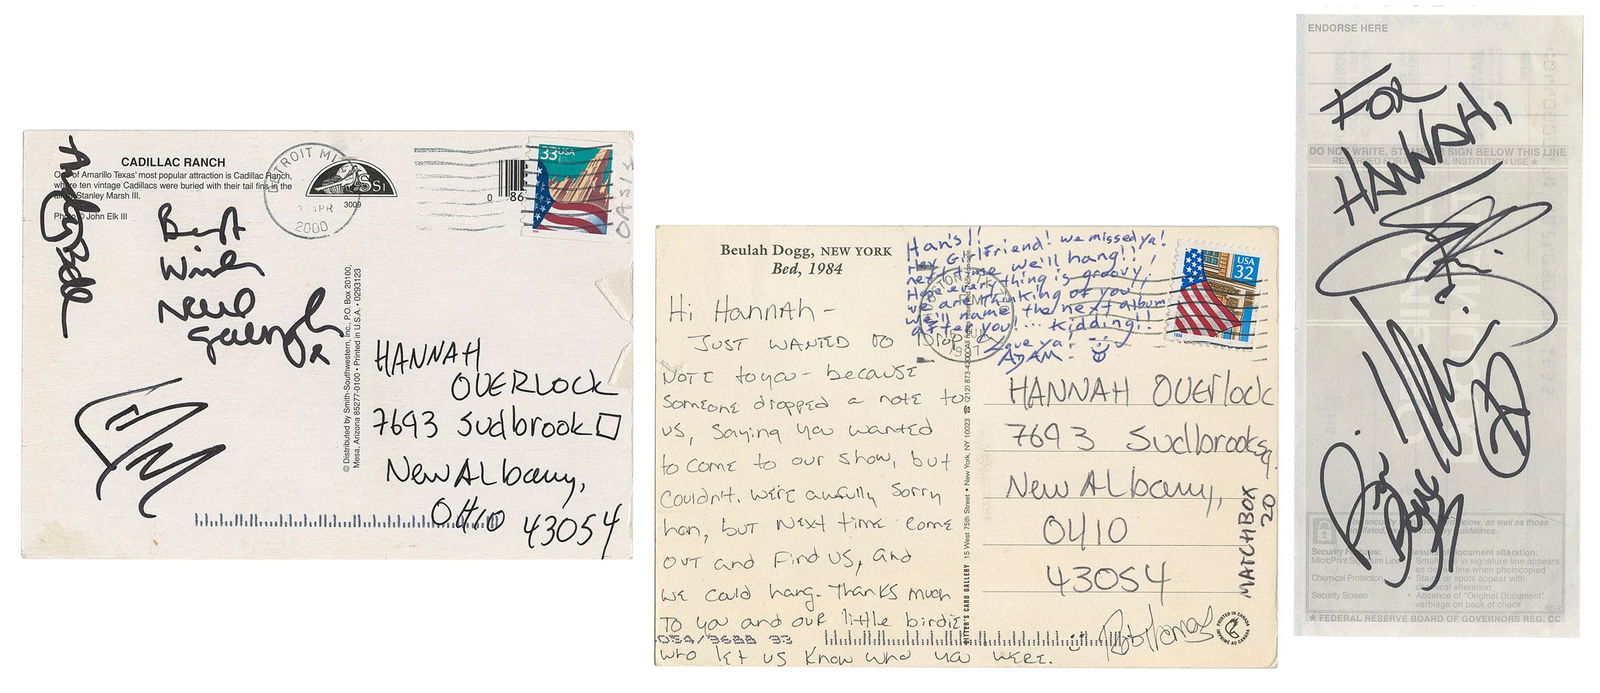 CADILLAC RANCH
One of Amarillo Texas' most popular attraction is Cadillac Ranch,
where ten vintage Cadillacs were buried with their tail fins in the
air. Stanley Marsh III.
Photo © John Elk III
DETROIT MI
APR
2000
SSI
3009
0 86
33 USA
Best
Wishes
© Distributed by Smith-Southwestern, Inc., P.O. Box 20100,
Mesa, Arizona 85277-0100 • Printed in U.S.A. • 0293123
HANNAH
OVERLOCK
7693 Sudbrook
New Albany,
OHIO 43054
Beulah Dogg, NEW YORK
Bed, 1984
Han's!!
Hey Girlfriend! we missed ya!
next time we'll hang!!
Hope everything is groovy,
we are thinking of you
we'll name the next album
after you!... Kidding!!
Love ya!
ADAM
USA
32
Hi Hannah -
JUST WANTED TO Drop a
NOTE to you - because
someone dropped a note to
us, saying you wanted
to come to our show, but
couldn't. We're awfully sorry
hon, but next time come
out and find us, and
we could hang. Thanks much
to you and our little birdie
who let us know who you were.
HANNAH OVERlock
7693 Sudbrook sq.
New Albany,
OHIO
43054
MATCHBOX
20
Rob Thomas
15 West 75th Street • New York, NY 10023
PRINTED IN CANADA
ENDORSE HERE
FOR
HANNAH,
DO NOT WRITE, STAMP OR SIGN BELOW THIS LINE
RESERVED FOR FINANCIAL INSTITUTION USE *
Security Features:
Results of document alteration:
MicroPrint Signature Line
Small type in signature line appears
as dotted line when photocopied
Chemical Protection
Stains or spots appear with
chemical alteration
Security Screen
• Absence of "Original Document"
verbiage on back of check
* FEDERAL RESERVE BOARD OF GOVERNORS REG. CC